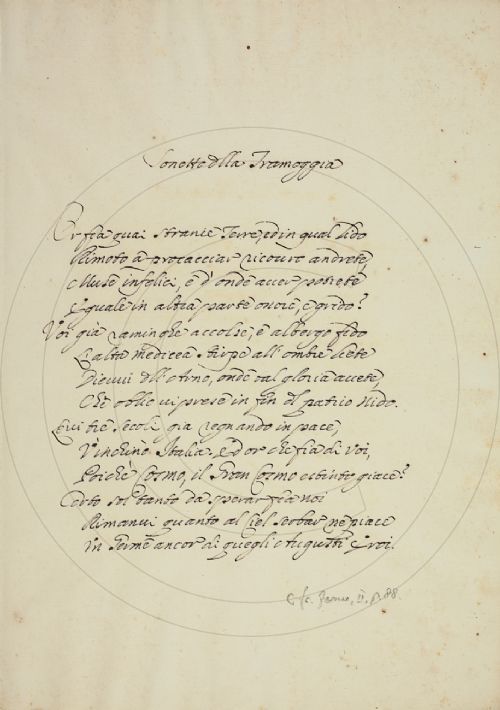 Sonetto dlla Tramoggia
Or fra quai stranie Terre, ed in qual lido
Rimoto à procacciar ricovro andrete,
Muse infelici, e d'onde aver potrete
Eguale in altra parte onore, e grido?
Voi già raminghe accolse, e albergo fido
L'alta Medicea stirpe all'ombre liete
Dievvi dll'Arno, onde tal gloria avete,
Che oblio vi prese in fin dl patrio Nido.
E vi tre secoli già regnando in pace,
V'inchinò Italia. Ed or che fia di voi,
Poichè Cosmo, il Gran Cosmo estinto giace?
Certo sol tanto da sperar fia noi
Rimanvi quanto al Ciel serbar ne piace
Un Germe ancor di quegli Augusti Eroi.
88.